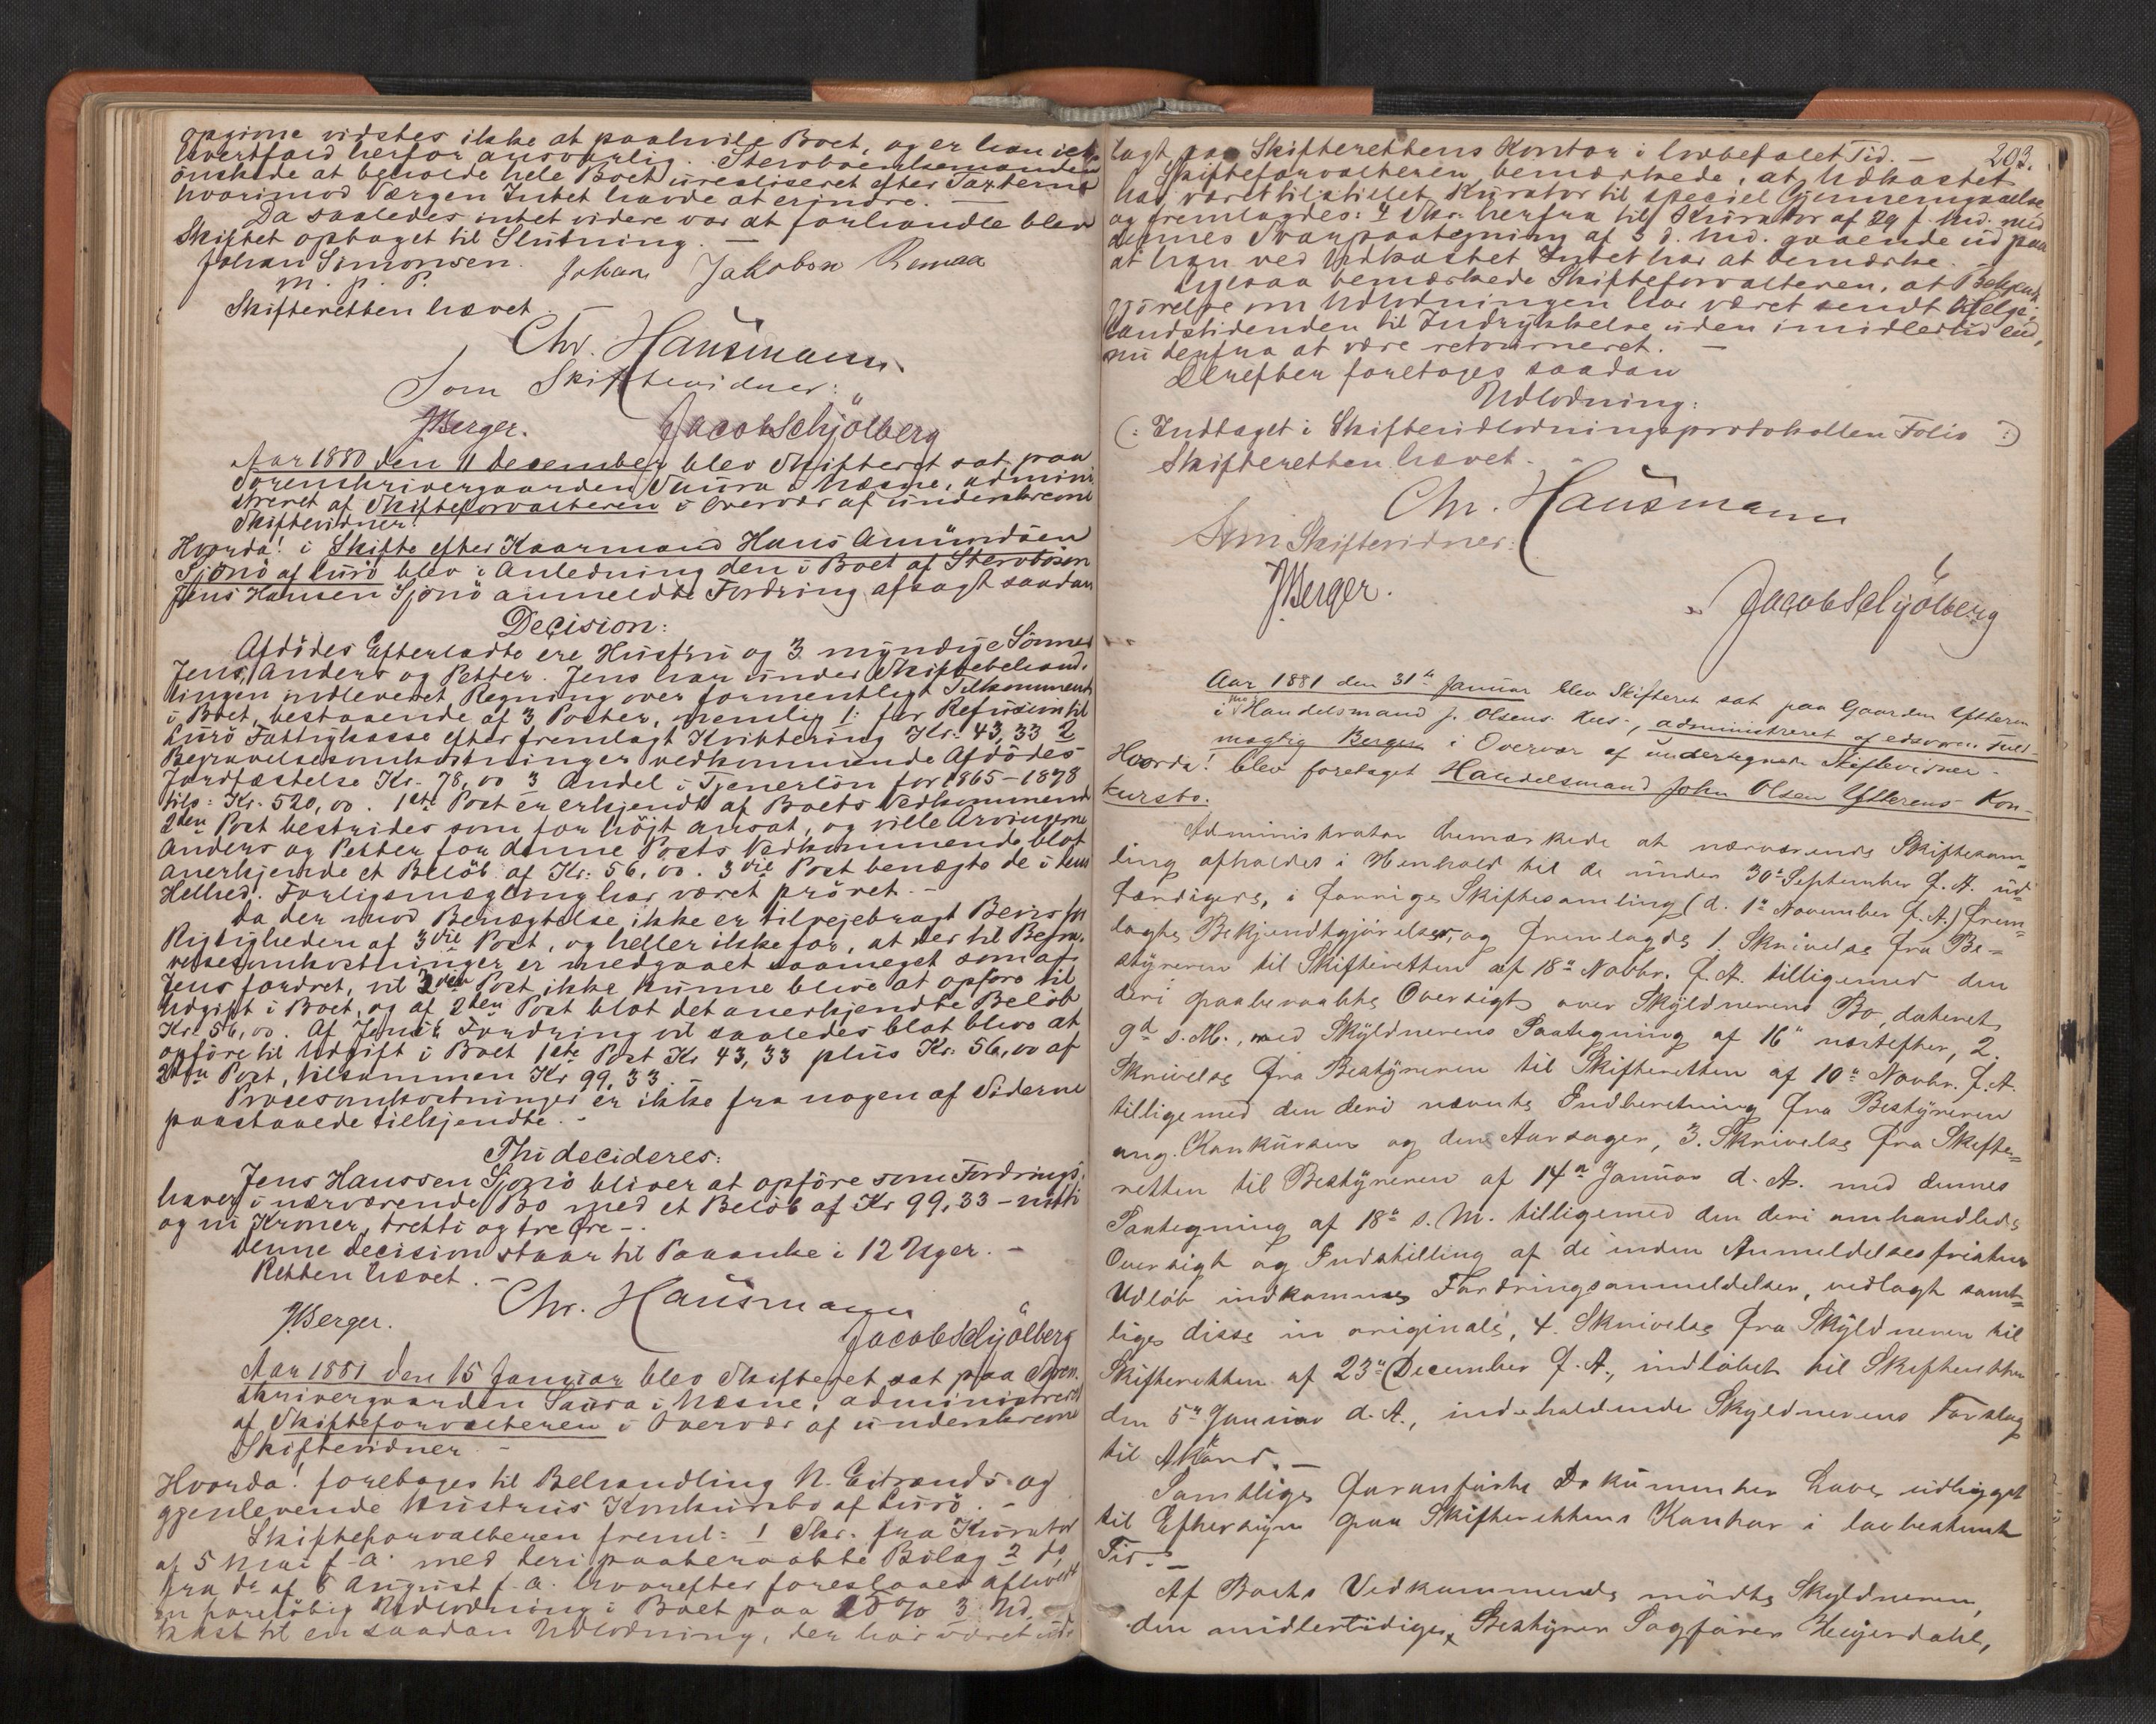 opgivne vidstes ikke at paahvile Boet, og er han i et-
hvertfald herfor ansvarlig. Stervboenkemanden
ønskede at beholde hele Boet urealiseret efter Taxterne
hvorimod Værgen Intet havde at erindre. —
Da saaledes intet videre var at forhandle blev
Skiftet optaget til Slutning. —
Johan Simonsen Johan Jakobsen Remaa
m. p. P.
Skifteretten hævet.
Chr. Hausmann
Som Skiftevidner:
JBerger. Jacob Schjölberg
Aar 1880 den 11 December blev Skifteret sat paa
Sorenskrivergaarden Saura i Næsne, admini-
streret af Skifteforvalteren i Overvær af underskrevne
Skiftevidner.
Hvorda! i Skifte efter Kaarmand Hans Amundsen
Sjonö af Lurö blev i Anledning den i Boet af Stervbösön
Jens Hansen Sjonö anmeldte Fordring afsagt saadan
Decision:
Afdödes Efterladte ere Hustru og 3 myndige Sönner
Jens, Anders og Petter. Jens har under Skiftebehand-
lingen indleveret Regning over formentligt Tilkommende
i Boet, bestaaende af 3 Poster, nemlig 1: for Refusion til
Lurö Fattigkasse efter fremlagt Kvittering Kr. 43,33 2
Begravelsesomkostninger vedkommende Afdödes
Jordfæstelse Kr. 78,00 3 Andel i Tjenerlön for 1865–1878
tils: Kr. 520,00. 1ste Post er erkjendt af Boets Vedkommende
2den Post bestrides som for höjt ansat, og ville Arvingerne
Anders og Petter for denne Posts Vedkommende blot
anerkjende et Belöb af Kr. 56,00. 3die Post benægte de i dens
Helhed. Forligsmægling har været prövet. —
Da der mod Benægtelse ikke er tilvejebragt Bevis for
Rigtigheden af 3die Post, og heller ikke for, at der til Begra-
velsesomkostninger er medgaaet saameget som af
Jens fordret, vil 3die Post ikke kunne blive at opföre til
Udgift i Boet, og af 2den Post blot det anerkjendte Belöb
Kr. 56,00. Af Jens's Fordring vil saaledes blot blive at
opföre til Udgift i Boet 1ste Post Kr 43,33 plus Kr. 56,00 af
2den Post, tilsammen Kr 99,33. —
Procesomkostninger er ikke fra nogen af Siderne
paastaaede tilkjendte. —
Thi decideres:
Jens Hanssen Sjonö bliver at opföre som Fordrings-
haver i nærværende Bo med et Belöb af Kr 99,33 – nitti
og ni Kroner, tretti og tre Øre –.
Denne Decision staar til Paaanke i 12 Uger. —
Retten hævet. —
Chr. Hausmann
JBerger. Jacob Schjölberg
Aar 1881 den 15 Januar blev Skifteret sat paa Soren-
skrivergaarden Saura i Næsne, administreret
af Skifteforvalteren i Overvær af underskrevne
Skiftevidner —
Hvorda! foretoges til Behandling N. Eitrands og
gjenlevende Hustrus Konkursbo af Lurö. —
Skifteforvalteren freml: 1 Skr. fra Kurator
af 5 Mai f. a. med deri paaberaabte Bilag 2 do
fra do af 6 August f. a. hvorefter foreslaaes afholdt
en foreløbig Udlodning i Boet paa 20 % 3 Ud-
kast til en saadan Udlodning, der har været ud-
203.
lagt paa Skifterettens Kontor i lovbefalet Tid. —
Skifteforvalteren bemærkede, at Udkastet
har været tilstillet Kurator til speciel Gjennemgaaelse
og fremlagdes: 4 Skr. herfra til Kurator af 29 f. Md. med
dennes Svarpaategning af 3 d. Md. gaaende ud paa
at han ved Udkastet Intet har at bemærke. —
Ligesaa bemærkede Skifteforvalteren, at Bekjendt-
gjörelse om Udlodningen har været sendt Helge-
landstidenden til Indrykkelse uden imidlertid end-
nu derfra at være retourneret. —
Derefter foretoges saadan
Udlodning:
(: Indtaget i Skifteudlodningsprotokollen Folio :)
Skifteretten hævet. —
Chr. Hausmann
Som Skiftevidner:
JBerger. Jacob Schjölberg
Aar 1881 den 31te Januar blev Skifteret sat paa Gaarden Ytteren
i Handelsmand J. Olsens Hus, administreret af edsvoren Fuld-
mægtig Berger i Overvær af undertegnede Skiftevidner.
Hvorda! blev foretaget Handelsmand John Olsen Ytterens Kon-
kursbo.
Administrator bemærkede at nærværende Skiftesam-
ling afholdes i Henhold til de under 30te September f. A. ud-
færdigede, i forrige Skiftesamling (d. 1ste November f. A.) frem-
lagte Bekjendtgjörelser, og fremlagde 1. Skrivelse fra Be-
styreren til Skifteretten af 18de Novbr. f. A. tilligemed den
deri paaberaabte Oversigt over Skyldnerens Bo, dateret
9de s. M., med Skyldnerens Paategning af 16de næstefter, 2
Skrivelse fra Bestyreren til Skifteretten af 10de Novbr. f. A.
tilligemed den deri nævnte Indberetning fra Bestyreren
ang. Konkursen og dens Aarsager, 3. Skrivelse fra Skifte-
retten til Bestyreren af 14de Januar d. A. med dennes
Paategning af 18de s. M. tilligemed den deri omhandlede
Oversigt og Indstilling af de inden Anmeldelsesfristens
Udløb indkomne Fordringsanmeldelser, vedlagt samt-
lige disse in originali, 4. Skrivelse fra Skyldneren til
Skifteretten af 23de December f. A., indløbet til Skifteretten
den 5te Januar d. A., indeholdende Skyldnerens Forslag
til Akkord. —
Samtlige foranførte Dokumenter have udligget
til Eftersyn paa Skifterettens Kontor i lovbestemt
Tid. —
Af Boets Vedkommende mødte Skyldneren,
den midlertidige Bestyrer Sagfører Heijerdahl,